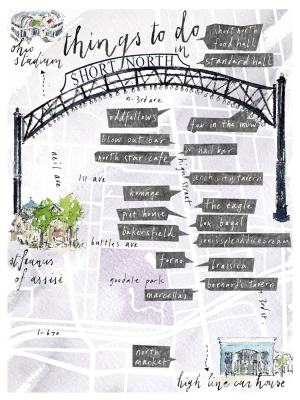 things to do
in
short north
food hall
standard hall
ohio
stadium
SHORT NORTH
n. 3rd ave
oddfellows
fox in the snow
blow out bar
nail bar
north star cafe
neil ave
high street
1st ave
arch city tavern
homage
the eagle
pint house
box bagel
bakersfield
jenis splendid ice cream
buttles ave
forno
brassica
st francis
of assisi
goodale park
bernards tavern
marcellas
n. 3rd st.
I-670
north
market
high line car house